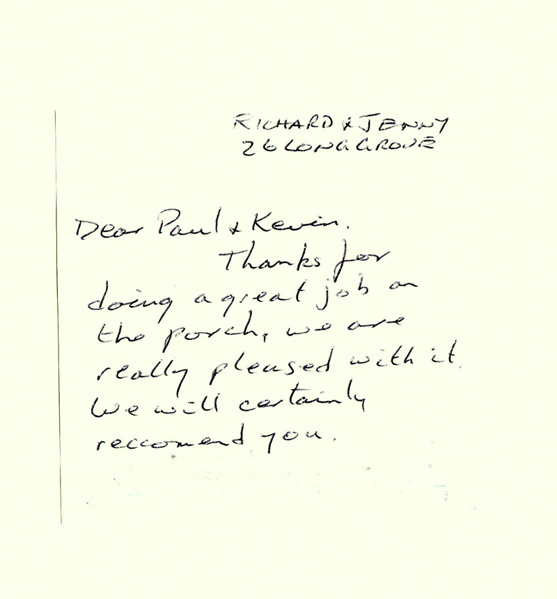 RICHARD & JENNY
26 LONG GROVE
Dear Paul & Kevin.
Thanks for
doing a great job on
the porch, we are
really pleased with it.
We will certainly
reccomend you.